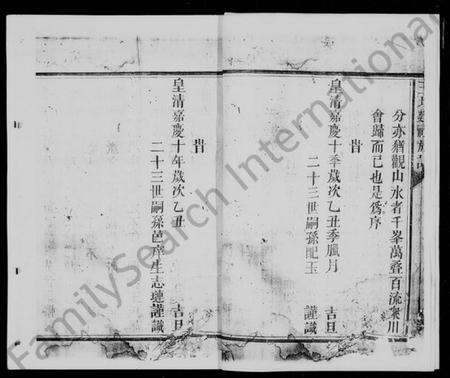 分亦猶觀山水者千峯萬叠百流衆川
會歸而已也是爲序
旹
皇清嘉慶十年歲次乙丑季臘月 吉旦
二十三世嗣孫配玉 謹識
旹
皇清嘉慶十年歲次乙丑 吉旦
二十三世嗣孫邑庠生志璉謹識
FamilySearch International